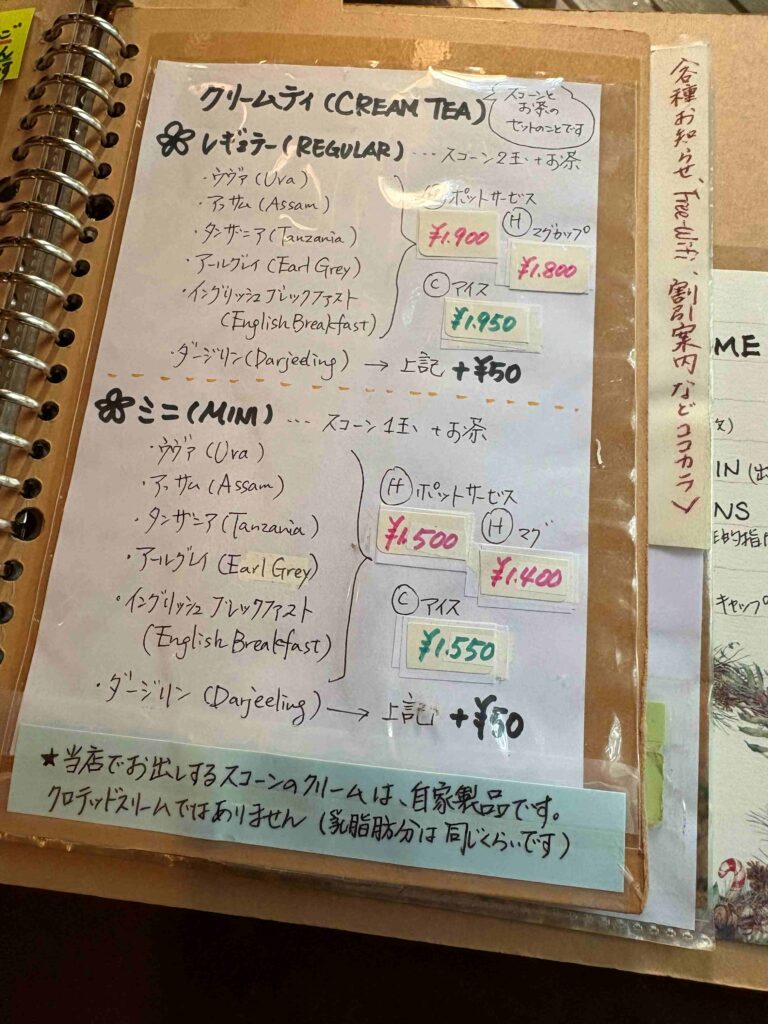 クリームティ(CREAM TEA)
スコーンと
お茶の
セットのことです
レギュラー(REGULAR)・・・スコーン2玉+お茶
・ウヴァ(Uva)
・アッサム(Assam)
・タンザニア(Tanzania)
・アールグレイ(Earl Grey)
・イングリッシュブレックファスト
(English Breakfast)
Ⓗポットサービス
¥1.900
Ⓗマグカップ
¥1.800
Ⓒアイス
¥1.950
・ダージリン(Darjeeling)→上記+¥50
ミニ(MINI)・・・スコーン1玉+お茶
・ウヴァ(Uva)
・アッサム(Assam)
・タンザニア(Tanzania)
・アールグレイ(Earl Grey)
・イングリッシュブレックファスト
(English Breakfast)
Ⓗポットサービス
¥1.500
Ⓗマグ
¥1.400
Ⓒアイス
¥1.550
・ダージリン(Darjeeling)→上記+¥50
★当店でお出しするスコーンのクリームは、自家製品です。
クロテッドスリームではありません(乳脂肪分は同じくらいです)
各種お知らせ、Free-wifi、割引案内などココカラ
ME
IN(出
NS
キャップ